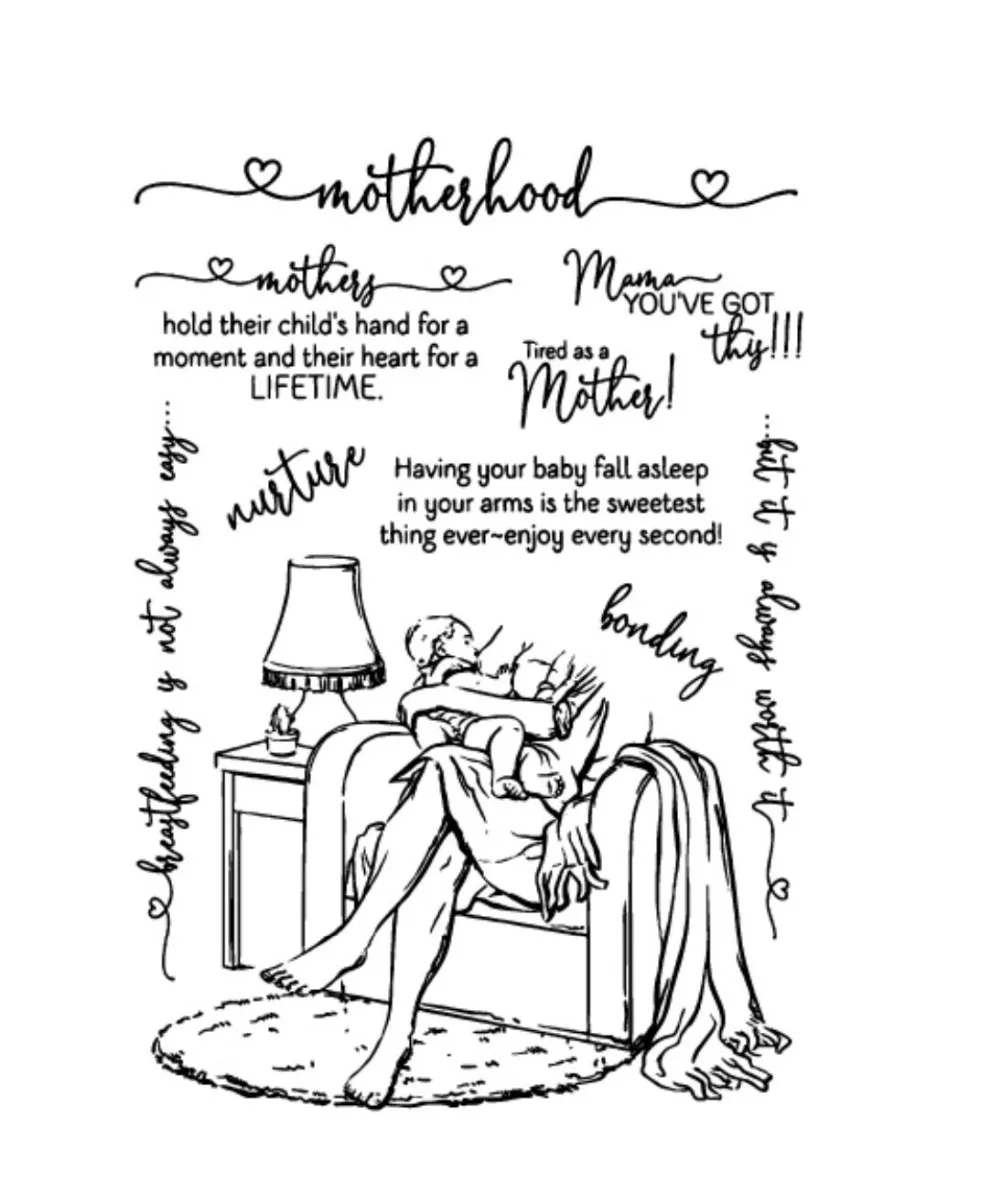 motherhood
mothers
hold their child's hand for a
moment and their heart for a
LIFETIME.
Mama
YOU'VE GOT
this!!!
Tired as a
Mother!
breastfeeding is not always easy...
...but it is always worth it
nurture
Having your baby fall asleep
in your arms is the sweetest
thing ever~enjoy every second!
bonding